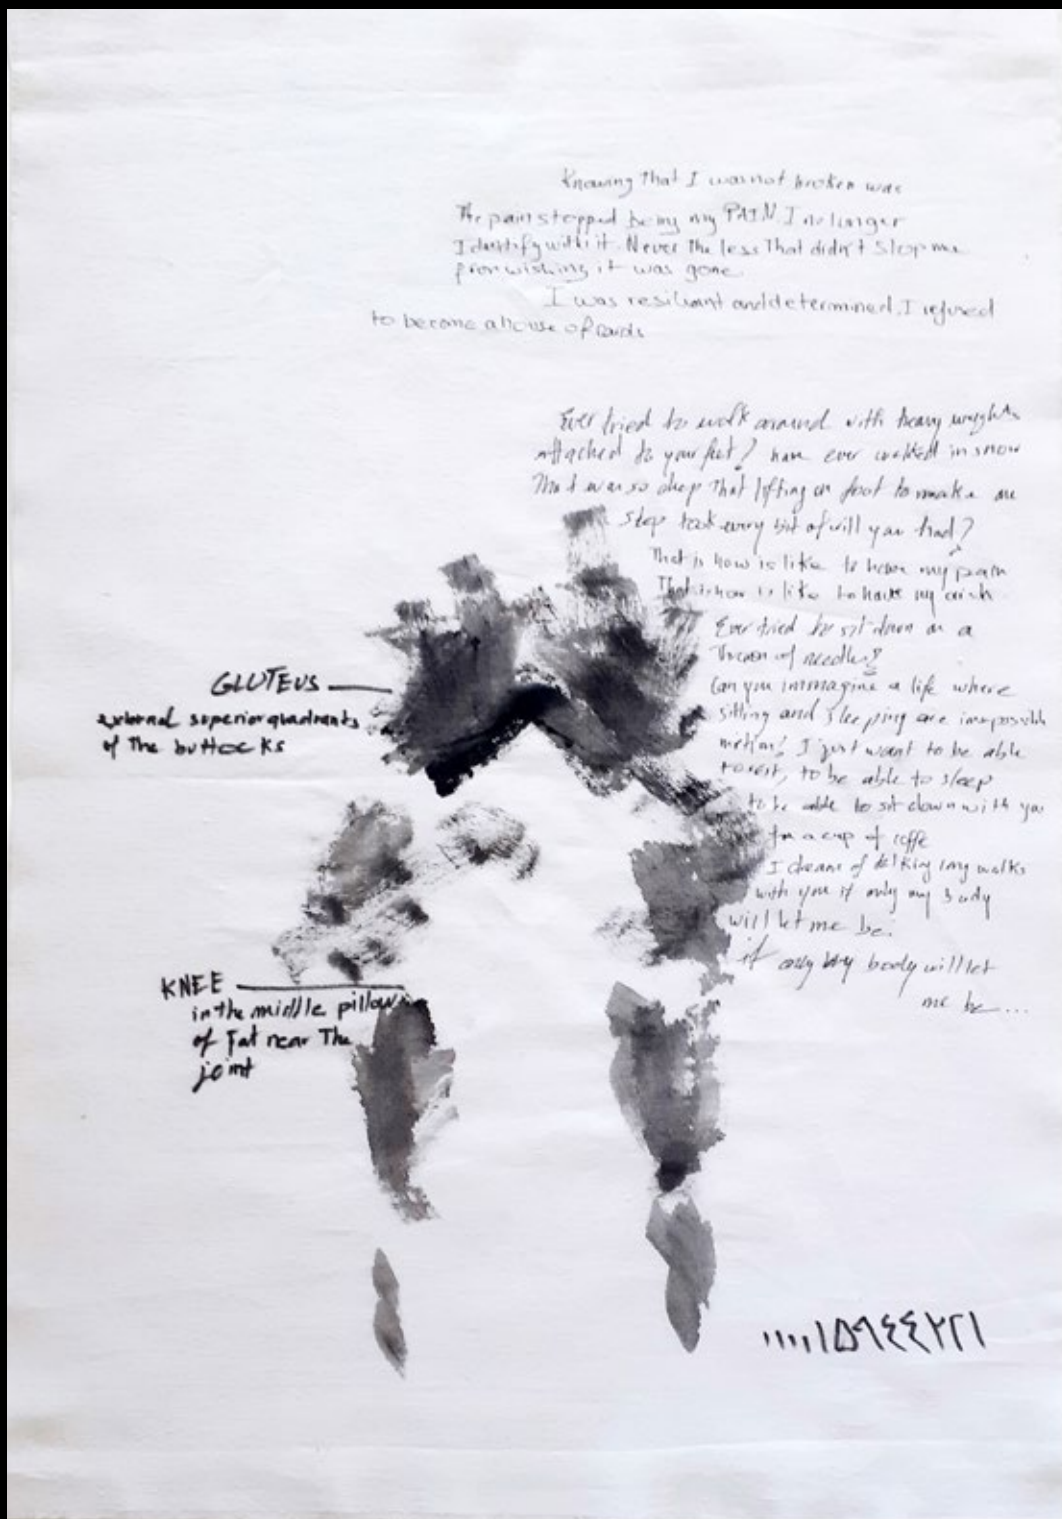 Knowing That I was not broken was
The pain stopped being my PAIN. I no longer
Identify with it. Never the less That didn't stop me
from wishing it was gone.
I was resiliant and determined. I refused
to become a house of cards
Ever tried to walk around with heavy weights
attached to your feet? have ever walked in snow
That was so deep That lifting on foot to make one
step took every bit of will you had?
That is how is like to have my pain
That is how is like to have my
Ever tried to sit down on a
of needles?
Can you immagine a life where
sitting and sleeping are impossible
I just want to be able
to rest, to be able to sleep
to be able to sit down with you
for a cup of coffe
I dream of long walks
with you if only my body
will let me be.
if only my body will let
me be...
GLUTEUS
external superior quadrants
of The buttocks
KNEE
in the middle pillow
of Fat near The
joint